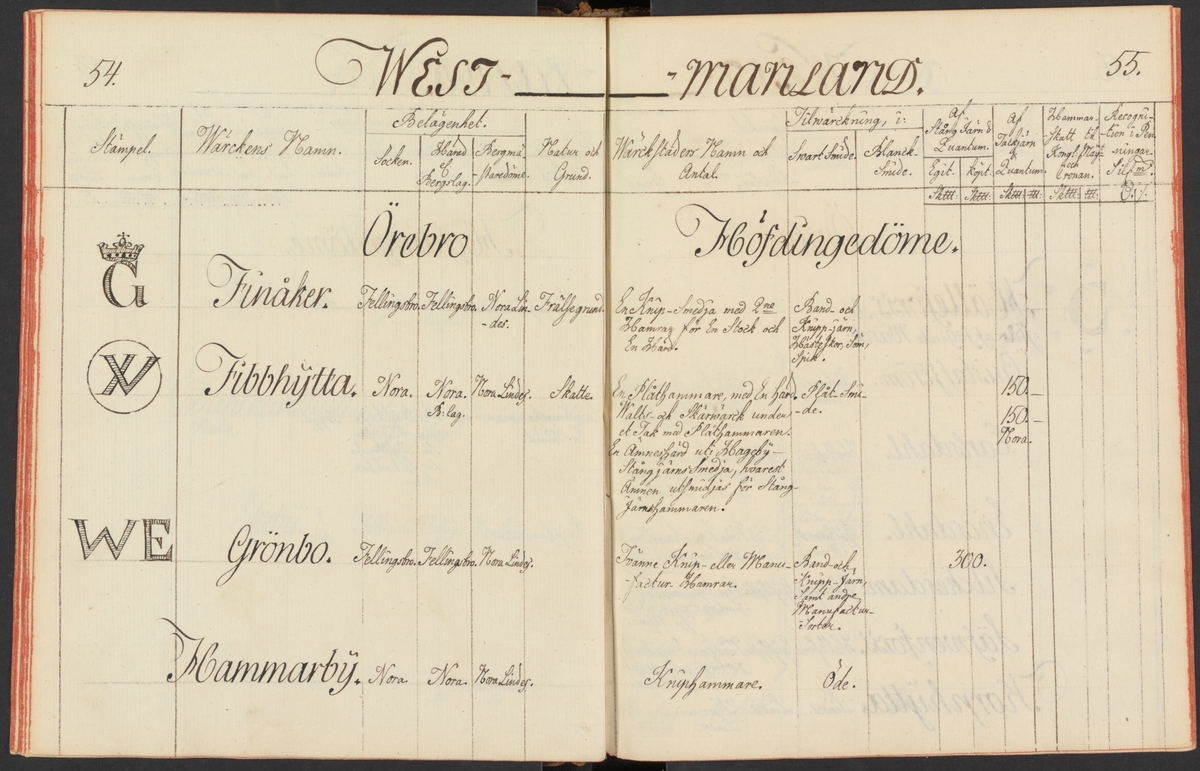 54.
WEST-
-MANLAND.
55.
Stämpel.
Wärckens Namn.
Belägenhet.
Socken.
Härad
Bergslag.
Bergmä-
staredöme.
Natur och
Grund.
Wärckstäders Namn och
Antal.
Tilwärckning, i:
Swart Smide.
Blanck-
Smide.
Af
Stång Järn
Quantum.
Egit.
Köpt.
Af
Tackjärn
Quantum.
Hammar-
-Skatt til
Kongl. Maÿt
och
Cronan.
Recogni-
-tion i Pen-
-ningar.
Örebro
Höfdingedöme.
G
Finåker.
Fellingsbro.
Fellingsbro.
Nora Lin-
-des.
Frälsegrund.
En Knip-Smedja med 2ne
Hamrar för En Stock och
En Härd.
Band- och
Knipp-järn,
Hästeskor, Söm,
Spik.
W
Fibbhÿtta.
Nora.
Nora.
B:lag.
Nora Lindes.
Skatte.
En Plåthammare, med En härd
Walts- och Skärwärck under
et Tak med Plåthammaren.
En Ämneshärd uti Hagebÿ-
Stångjärns Smedja, hvarest
Ämnen utsmidjas för Stång-
Järnshammaren.
Plåt-Smi-
-de.
150.
150.
Nora.
WE
Grönbo.
Fellingsbro.
Fellingsbro.
Nora Lindes.
Tvänne Knip- eller Manu-
-factur Hamrar.
Band- och
Knipp-Järn,
Samt andre
Manufactur-
Sorter.
300.
Hammarbÿ.
Nora.
Nora.
Nora Lindes.
Kniphammare.
Öde.